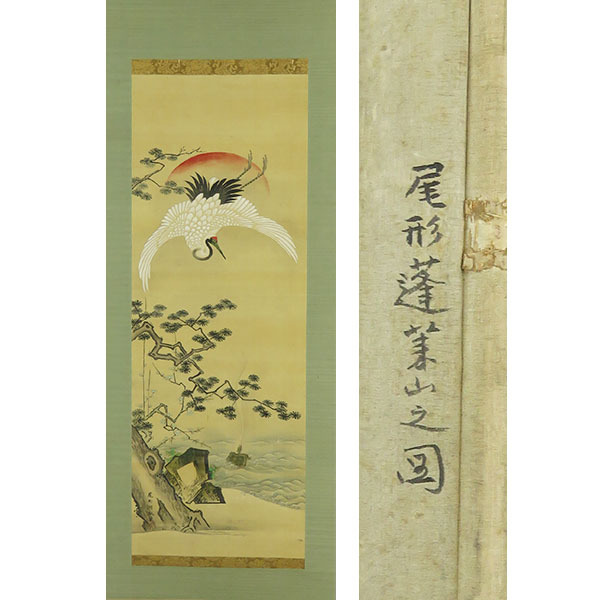 尾形蓬莱山之図